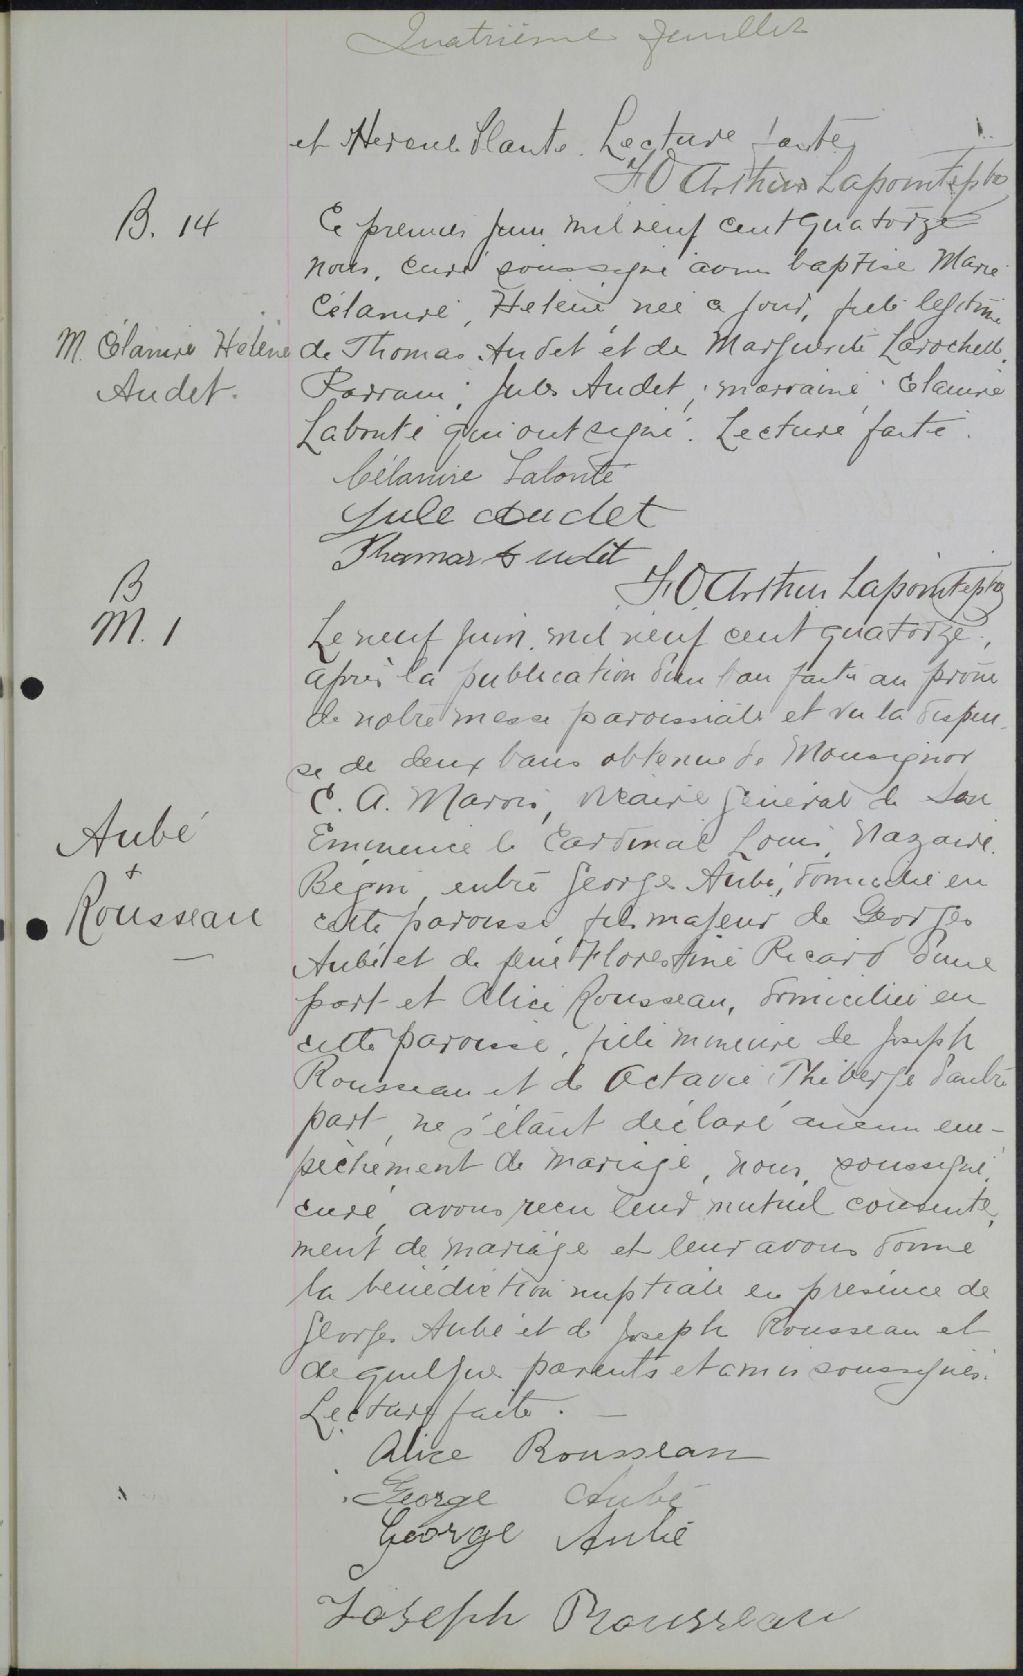 Quatrième feuillet
et Hercule Plante. Lecture faite
J O Arthur Lapointe ptre
B. 14
Ce premier juin mil neuf cent quatorze
nous, curé soussigné avons baptisé Marie
Célanire, Hélène née ce jour, fille légitime
M. Célanire Hélène
Audet.
de Thomas Audet et de Marguerite Larochelle.
Parrain: Jules Audet; marraine: Célanire
Labonté qui ont signé. Lecture faite.
Célanire Labonté
Jule Audet
Thomas Audet
J O Arthur Lapointe ptre
B
M. 1
Le neuf juin mil neuf cent quatorze,
après la publication d'un ban faite au prône
de notre messe paroissiale et vu la dispen-
se de deux bans obtenue de Monsignor
C. A. Marois, vicaire général de Son
Aubé
+
Rousseau
Eminence le Cardinal Louis Nazaire
Bégin, entre Georges Aubé, domicilié en
cette paroisse fils majeur de Georges
Aubé et de feue Florestine Picard d'une
part et Alice Rousseau, domiciliée en
cette paroisse, fille mineure de Joseph
Rousseau et de Octavie Thiberge d'autre
part, ne s'étant déclaré aucun em-
pêchement de mariage, nous, soussigné,
curé, avons reçu leur mutuel consente-
ment de mariage et leur avons donné
la bénédiction nuptiale en présence de
Georges Aubé et de Joseph Rousseau et
de quelques parents et amis soussignés.
Lecture faite. —
Alice Rousseau
George Aubé
George Aubé
Joseph Rousseau